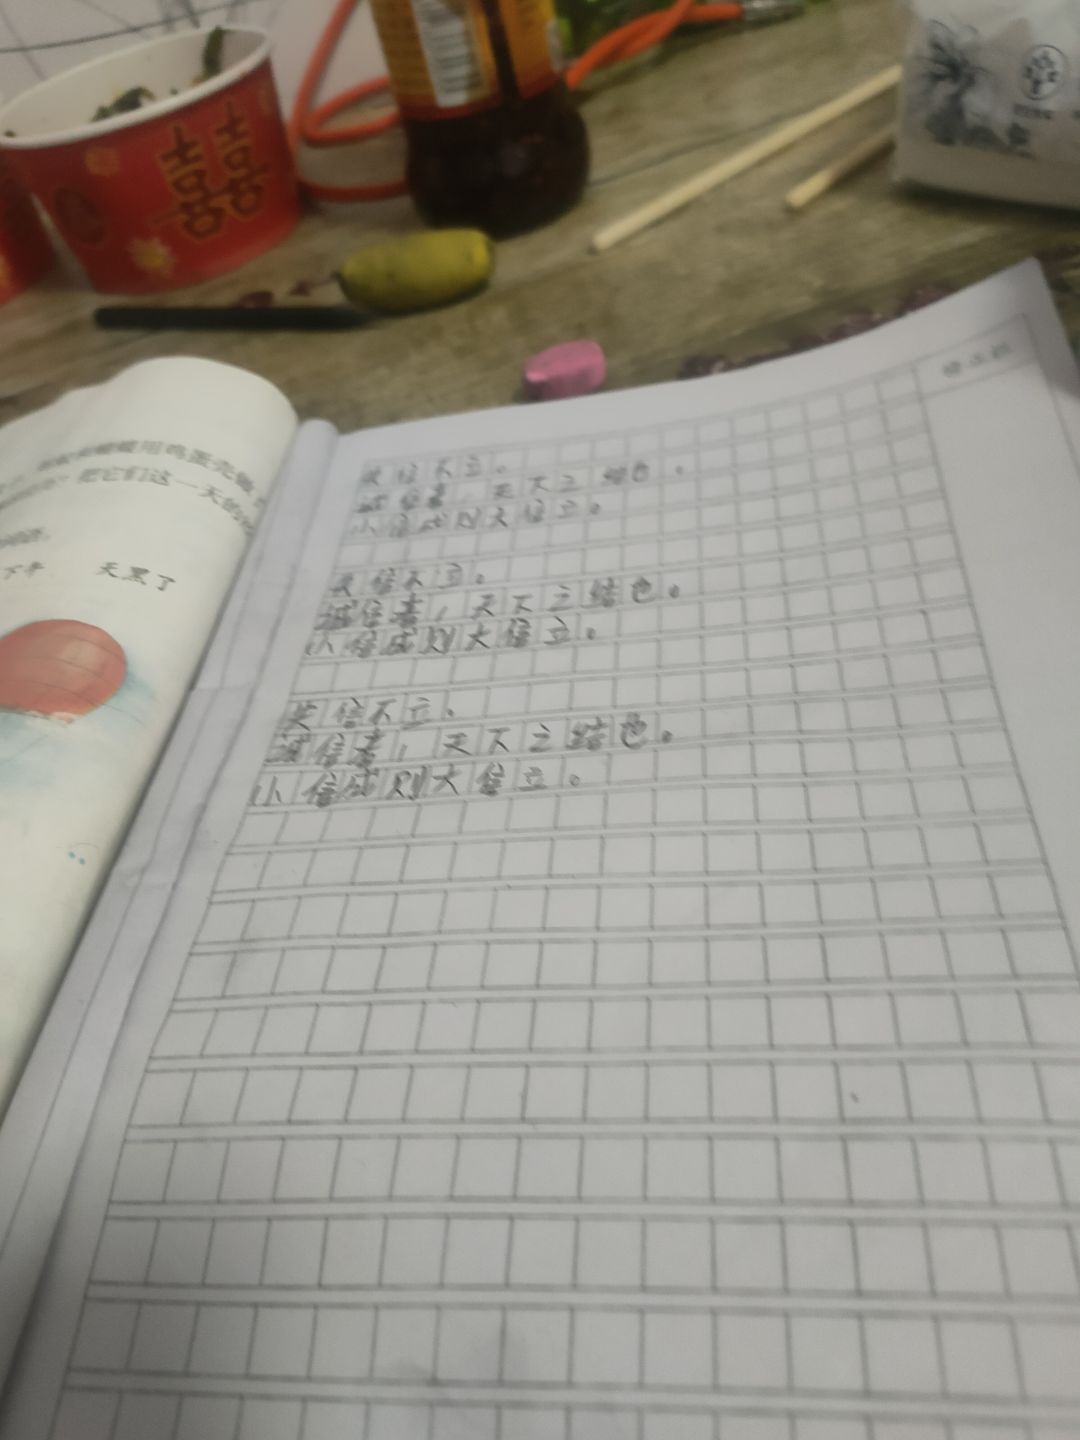 囍
用鸡蛋壳做
把它们这一天的
下午 天黑了
失信不立。
诚信者，天下之结也。
小信成则大信立。
失信不立。
诚信者，天下之结也。
小信成则大信立。
失信不立。
诚信者，天下之结也。
小信成则大信立。